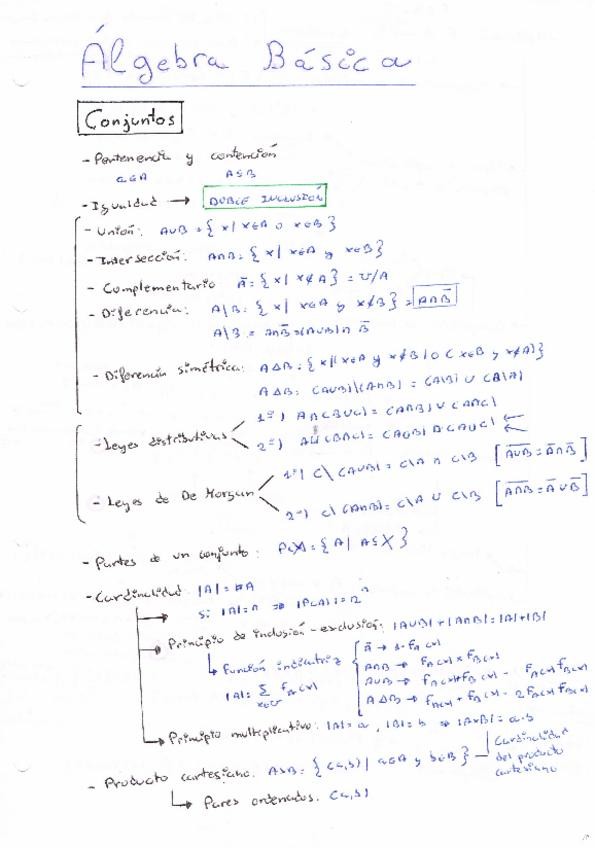 Álgebra Básica
Conjuntos
- Pertenencia y contención
a∈A A⊆B
- Igualdad → DOBLE INCLUSIÓN
- Unión: A∪B = { x | x∈A o x∈B }
- Intersección: A∩B = { x | x∈A y x∈B }
- Complementario Ā = { x | x∉A } = U/A
- Diferencia: A\B = { x | x∈A y x∉B } = A∩B̄
A\B = A∩B̄ = (A∪B)∩B̄
- Diferencia simétrica: A△B = { x | (x∈A y x∉B) o (x∈B y x∉A) }
A△B = (A∪B)\(A∩B) = (A\B) ∪ (B\A)
- Leyes distributivas
1ª) A∩(B∪C) = (A∩B)∪(A∩C)
2ª) A∪(B∩C) = (A∪B)∩(A∪C)
- Leyes de De Morgan
1ª) C\(A∪B) = C\A ∩ C\B [ A̅∪̅B̅ = Ā∩B̄ ]
2ª) C\(A∩B) = C\A ∪ C\B [ A̅∩̅B̅ = Ā∪B̄ ]
- Partes de un conjunto: P(X) = { A | A⊆X }
- Cardinalidad |A| = #A
→ si |A| = n ⇒ |P(A)| = 2ⁿ
→ Principio de inclusión-exclusión: |A∪B| + |A∩B| = |A| + |B|
↳ Función indicatriz
|A| = Σ f_A(x)
x∈U
Ā → 1 - f_A(x)
A∩B → f_A(x) x f_B(x)
A∪B → f_A(x) + f_B(x) - f_A(x) f_B(x)
A△B → f_A(x) + f_B(x) - 2f_A(x) f_B(x)
→ Principio multiplicativo: |A| = a, |B| = b ⇒ |AxB| = a·b
- Producto cartesiano: AxB = { (a,b) | a∈A y b∈B } — Cardinalidad del producto cartesiano
↳ Pares ordenados. (a,b)